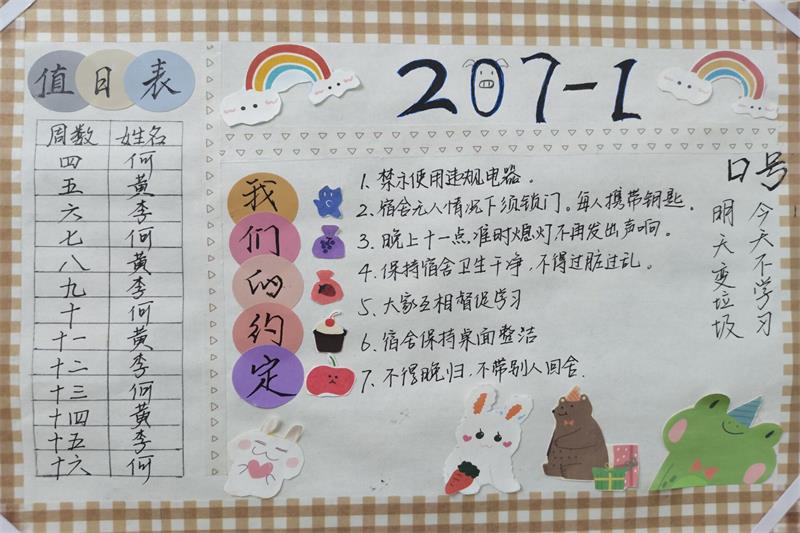 值日表
周数 姓名
四 何
五 黄
六 李
七 何
八 黄
九 李
十 何
十一 黄
十二 李
十三 何
十四 黄
十五 李
十六 何
207-1
我们的约定
1. 禁示使用违规电器。
2. 宿舍无人情况下须锁门。每人携带钥匙。
3. 晚上十一点准时熄灯不再发出声响。
4. 保持宿舍卫生干净,不得过脏过乱。
5. 大家互相督促学习
6. 宿舍保持桌面整洁
7. 不得晚归,不带别人回舍.
口号
今天不学习
明天变垃圾